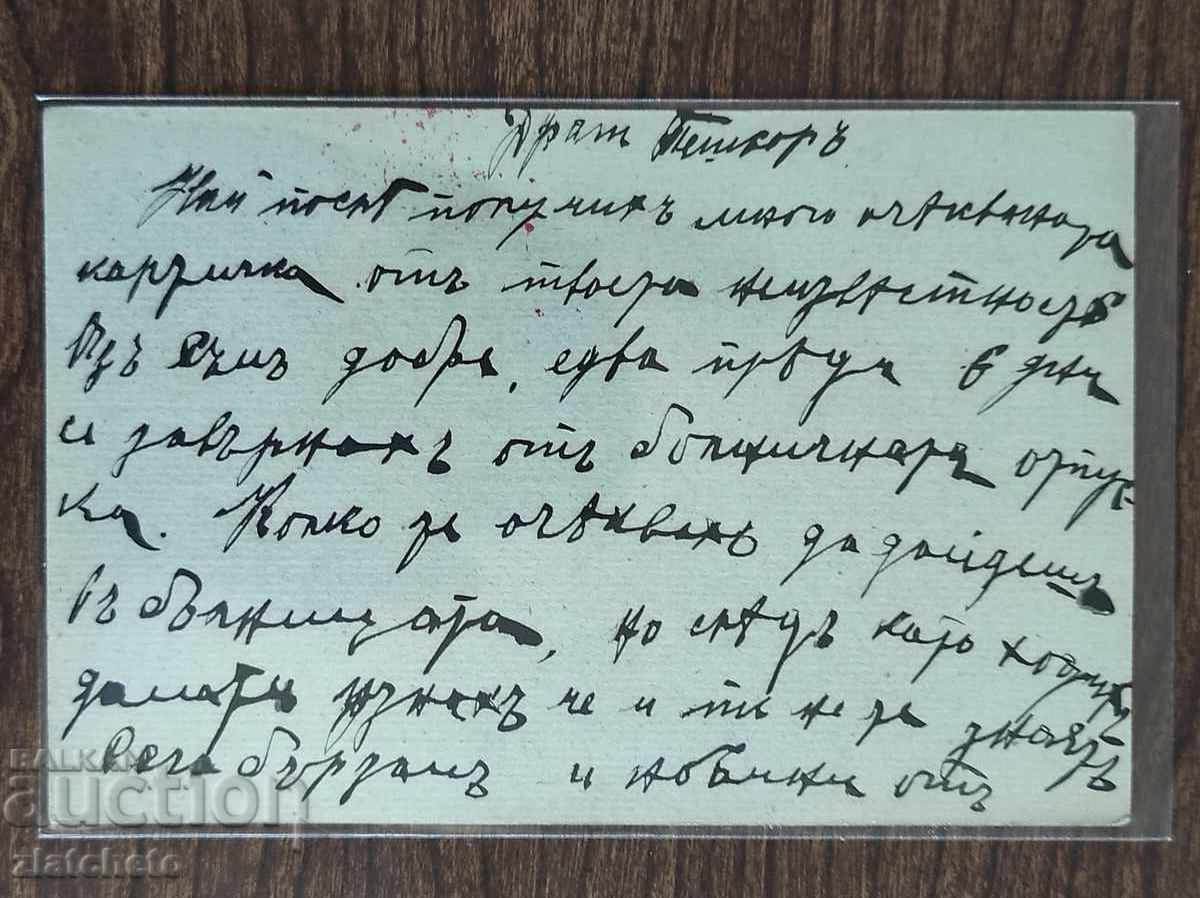 Драги Петкоръ
Най послѣ получихъ много очѣкваната
картичка отъ твоета неизвѣстность
Азъ съмъ добрѣ, едва прѣди 6 дни
се завърнахъ отъ болничната отпус
ка. Колко те очѣквахъ да дойдешъ
въ болницата, но слѣдъ като ходихъ
дома ти узнахъ че и ти не те знаятъ
Сега бързамъ и отъ
BALKAN
auction
zlatcheto